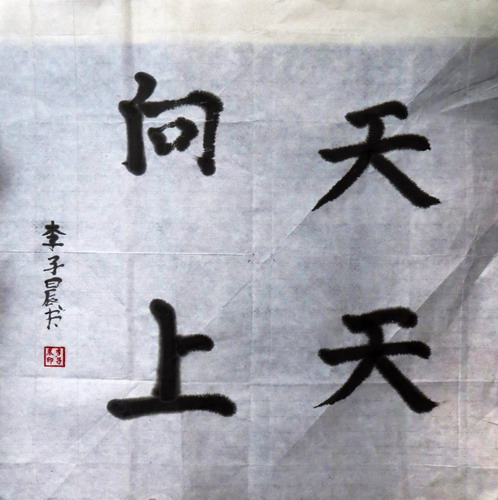 天天
向上
李子晨书